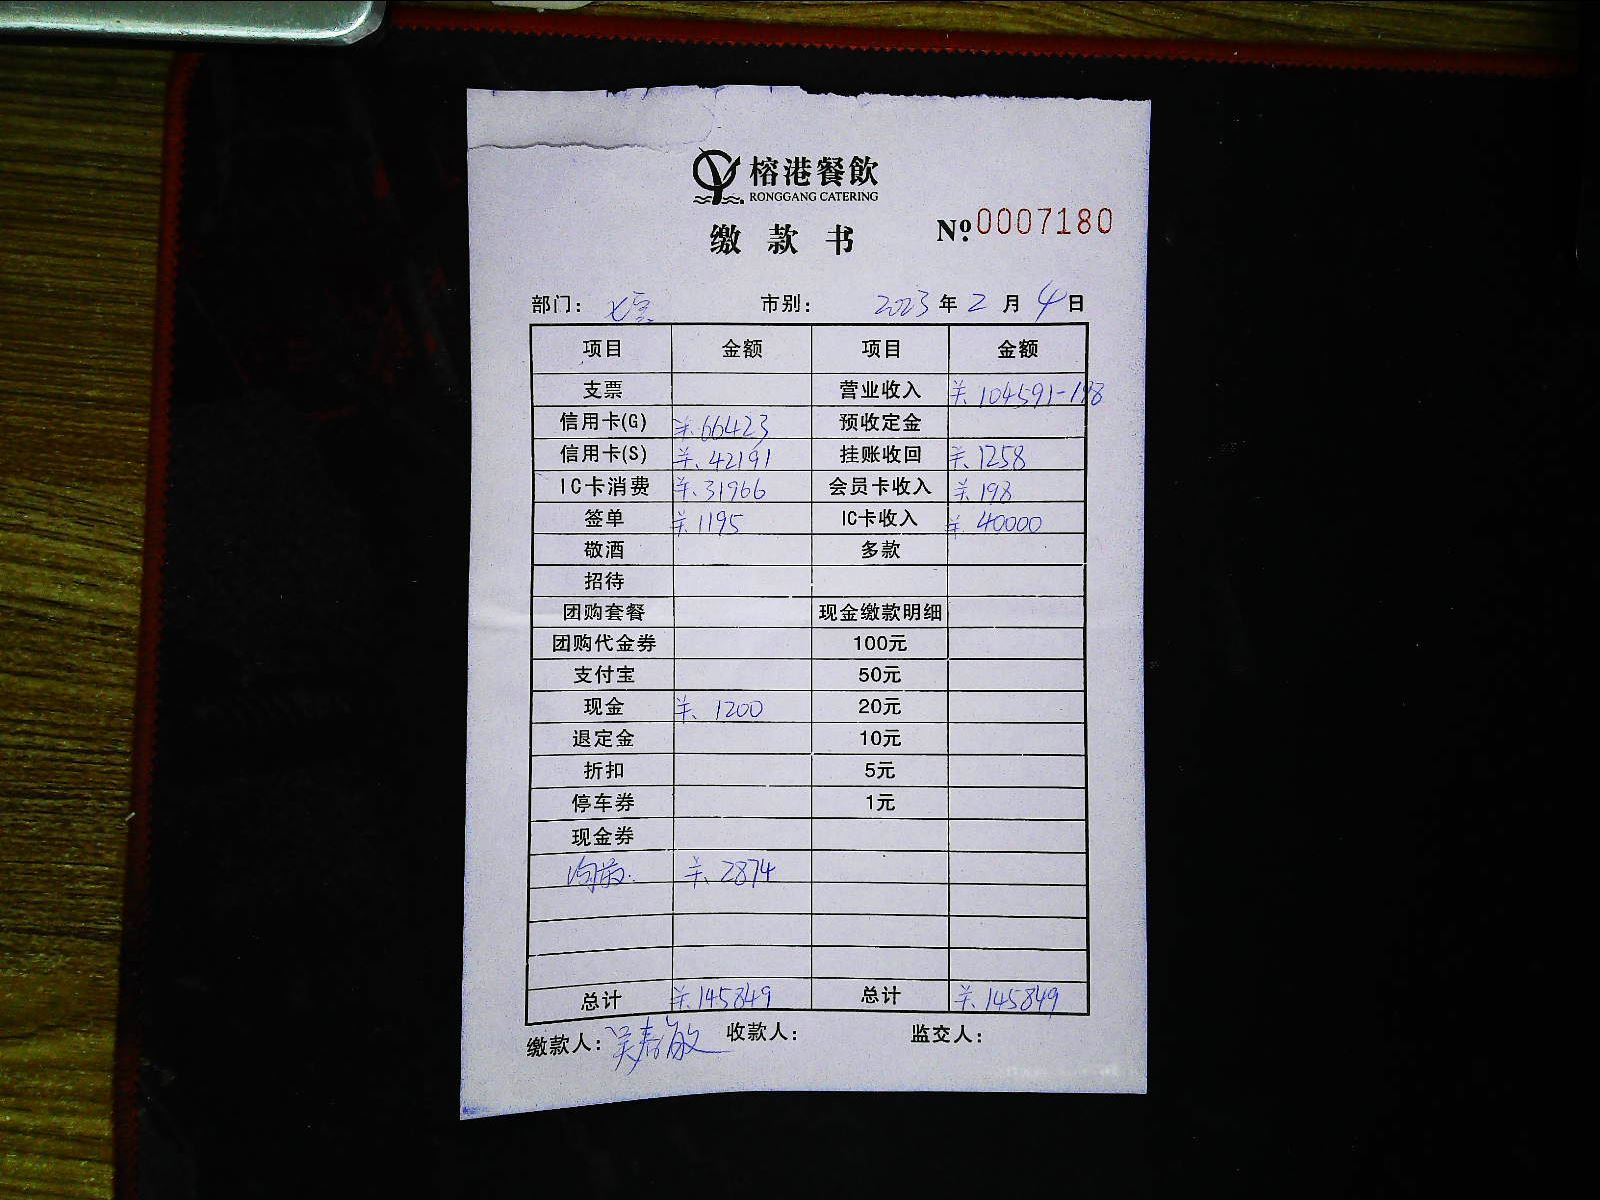 榕港餐飲
RONGGANG CATERING
缴款书 Nº 0007180
部门： 市别： 2023年2月4日
项目 金额 项目 金额
支票 营业收入 ¥104591-198
信用卡(G) ¥66423 预收定金
信用卡(S) ¥42191 挂账收回 ¥1258
IC卡消费 ¥31966 会员卡收入 ¥198
签单 ¥1195 IC卡收入 ¥40000
敬酒 多款
招待
团购套餐 现金缴款明细
团购代金券 100元
支付宝 50元
现金 ¥1200 20元
退定金 10元
折扣 5元
停车券 1元
现金券
¥2874
总计 ¥145849 总计 ¥145849
缴款人：吴春敏 收款人： 监交人：